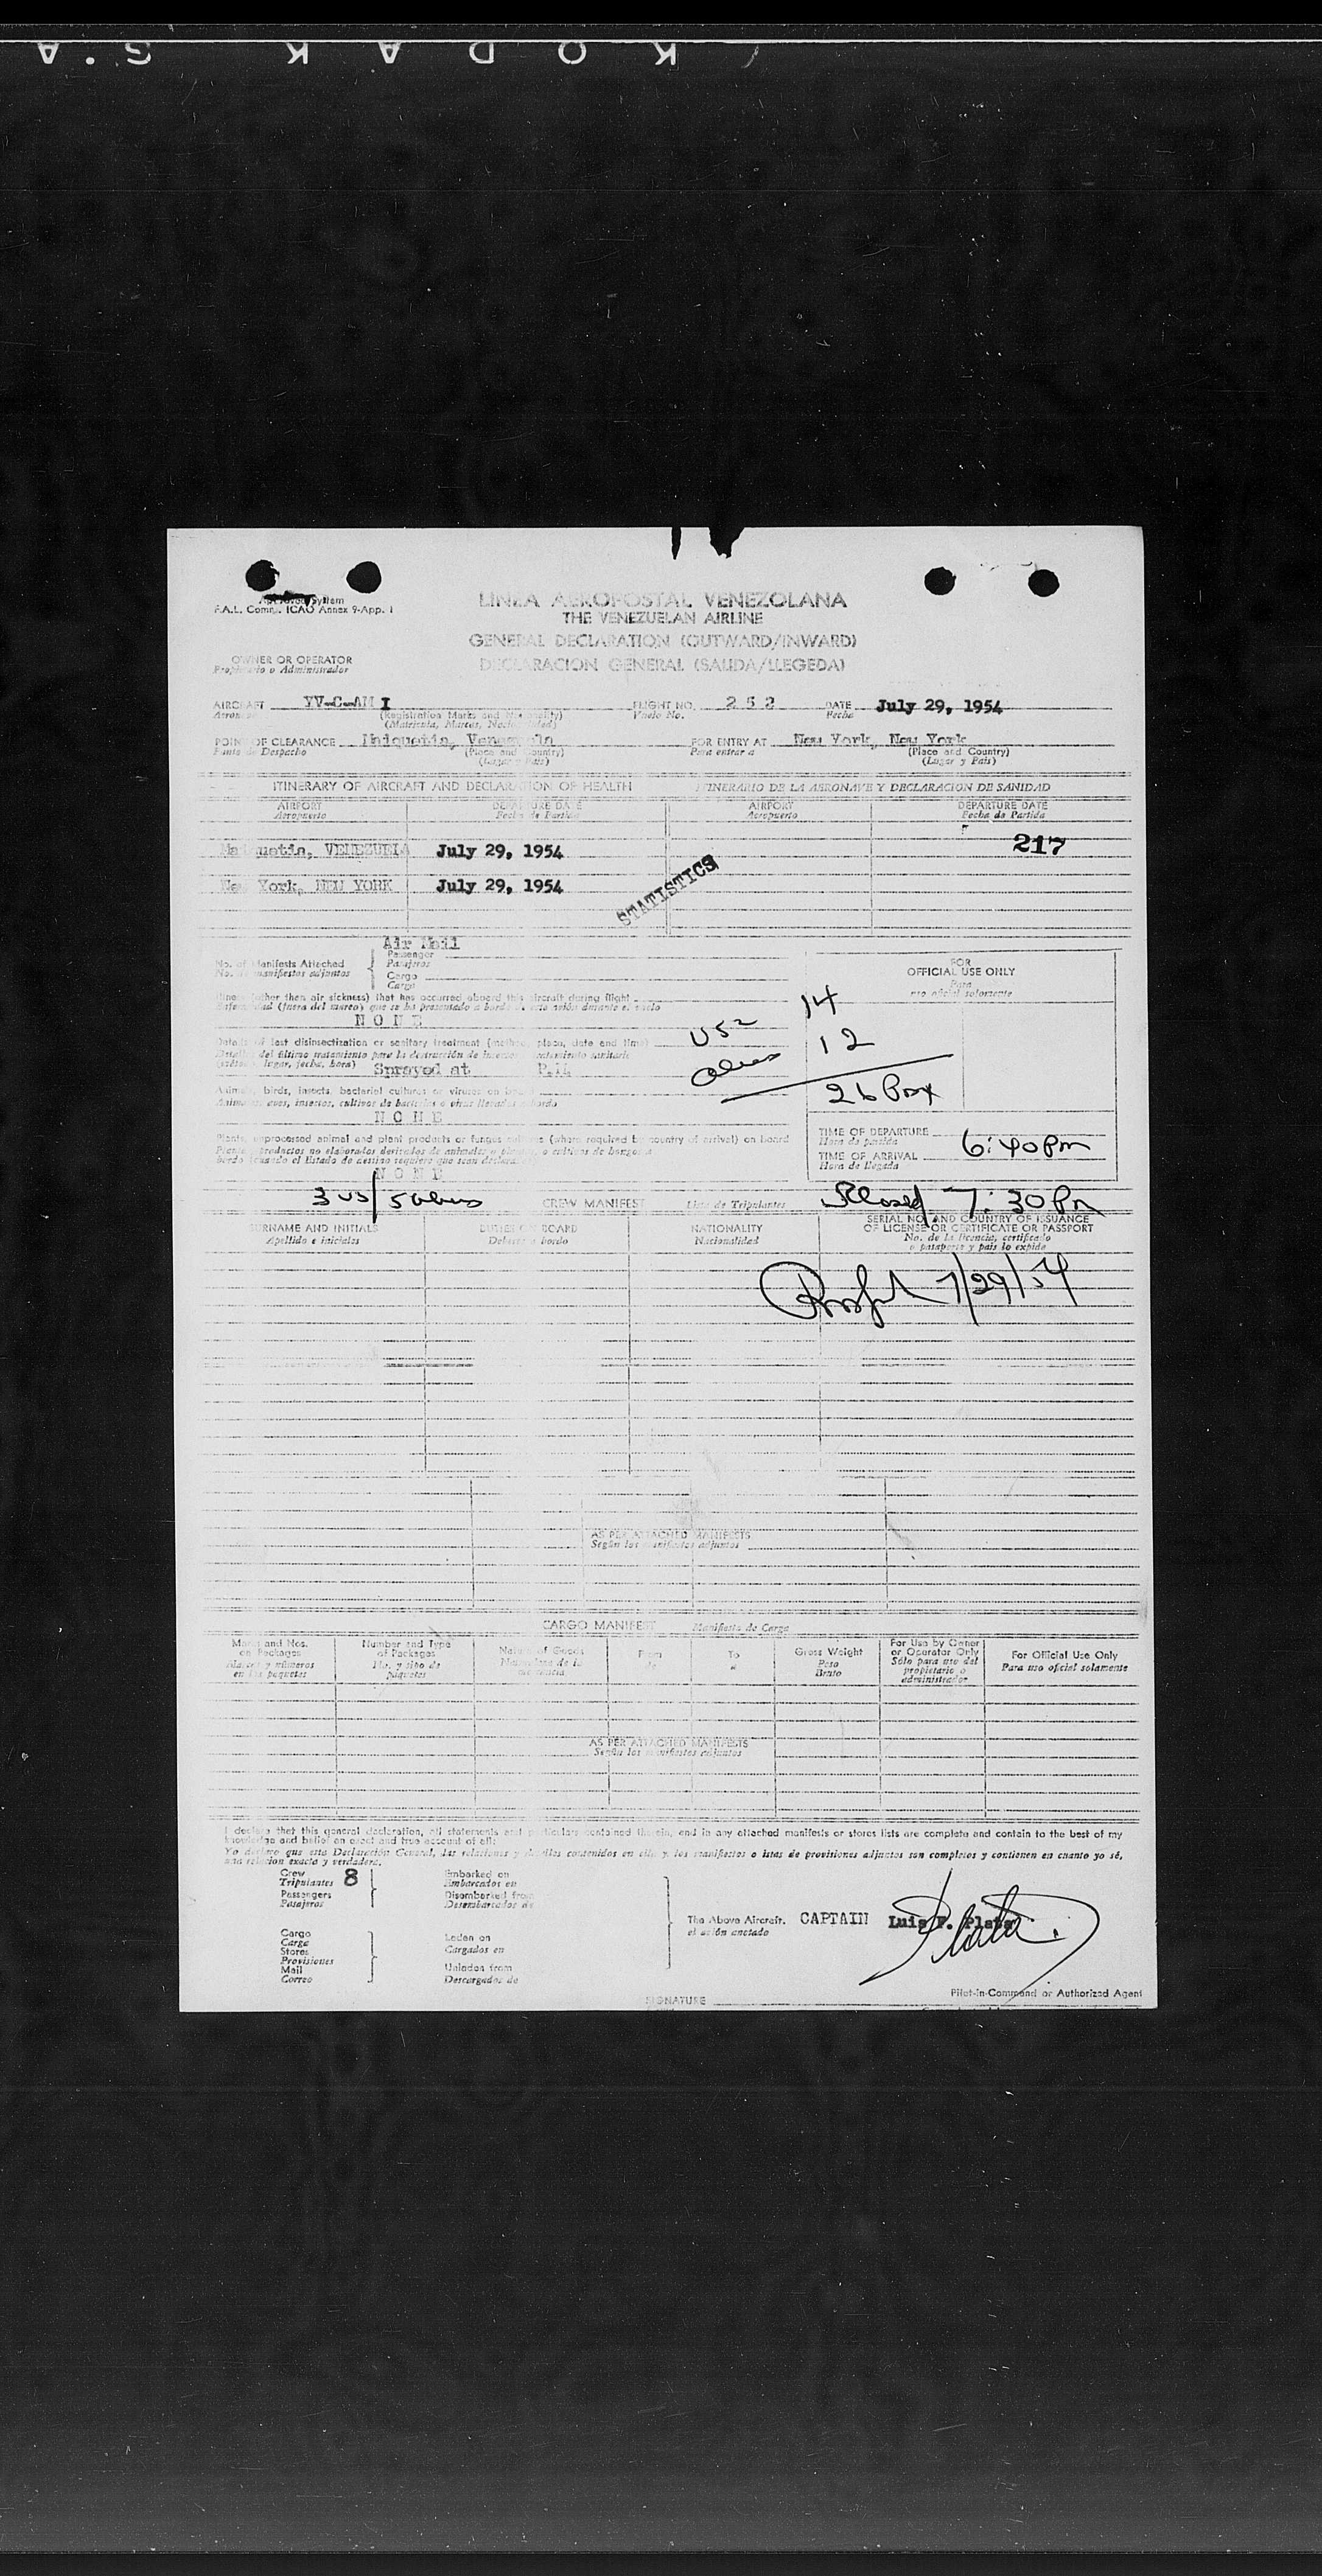 KODAK S.A
Approved System
F.A.L. Comm. ICAO Annex 9-App. 1
LINEA AEROPOSTAL VENEZOLANA
THE VENEZUELAN AIRLINE
GENERAL DECLARATION (OUTWARD/INWARD)
DECLARACION GENERAL (SALIDA/LLEGEDA)
OWNER OR OPERATOR
Propietario o Administrador
AIRCRAFT YV-C-AM I FLIGHT NO. 2 5 2 DATE July 29, 1954
Aeronave (Registration Marks and Nationality) Vuelo No. Fecha
(Matrícula, Marcas, Nacionalidad)
POINT OF CLEARANCE Maiquetia, Venezuela FOR ENTRY AT New York, New York
Punto de Despacho (Place and Country) Para entrar a (Place and Country)
(Lugar y País) (Lugar y País)
ITINERARY OF AIRCRAFT AND DECLARATION OF HEALTH ITINERARIO DE LA AERONAVE Y DECLARACION DE SANIDAD
AIRPORT DEPARTURE DATE AIRPORT DEPARTURE DATE
Aeropuerto Fecha de Partida Aeropuerto Fecha de Partida
217
Maiquetia, VENEZUELA July 29, 1954
New York, NEW YORK July 29, 1954
STATISTICS
Air Mail
No. of Manifests Attached Passenger
No. de manifiestos adjuntos Pasajeros
Cargo
Carga
FOR
OFFICIAL USE ONLY
Para
uso oficial solamente
Illness (other than air sickness) that has occurred aboard this aircraft during flight
Enfermedad (fuera del mareo) que se ha presentado a bordo de este avión durante el vuelo
N O N E
USC 14
Details of last disinsectization or sanitary treatment (method, place, date and time)
Detalles del último tratamiento para la destrucción de insectos o tratamiento sanitario
(método, lugar, fecha, hora) Sprayed at P.M.
Aliens 12
26 Pax
Animals, birds, insects, bacterial cultures or viruses on board
Animales, aves, insectos, cultivos de bacterias o virus llevados a bordo
N O N E
Plants, unprocessed animal and plant products or fungus cultures (where required by country of arrival) on board
Plantas, productos no elaborados derivados de animales o plantas, o cultivos de hongos a
bordo (cuando el Estado de destino requiere que sean declarados)
N O N E
TIME OF DEPARTURE
Hora de partida
6:40 Pm
TIME OF ARRIVAL
Hora de llegada
3 us/5 aliens CREW MANIFEST Lista de Tripulantes Closed 7:30 Pm
SURNAME AND INITIALS DUTIES ON BOARD NATIONALITY SERIAL NO. AND COUNTRY OF ISSUANCE
OF LICENSE OR CERTIFICATE OR PASSPORT
Apellido e iniciales Deberes a bordo Nacionalidad No. de la licencia, certificado
o pasaporte y país lo expide
7/29/54
AS PER ATTACHED MANIFESTS
Según los manifiestos adjuntos
CARGO MANIFEST Manifiesto de Carga
Marks and Nos. on Packages Number and Type of Packages Nature of Goods From To Gross Weight For Use by Owner or Operator Only For Official Use Only
Marcas y números en los paquetes No. y tipo de paquetes Naturaleza de la mercancía de a Peso Bruto Sólo para uso del propietario o administrador Para uso oficial solamente
AS PER ATTACHED MANIFESTS
Según los manifiestos adjuntos
I declare that this general declaration, all statements and particulars contained therein, and in any attached manifests or stores lists are complete and contain to the best of my
knowledge and belief an exact and true account of all:
Yo declaro que esta Declaración General, las relaciones y detalles contenidos en ella y los manifiestos o listas de provisiones adjuntos son completos y contienen en cuanto yo sé,
una relación exacta y verdadera.
Crew Embarked on
Tripulantes 8 Embarcados en
Passengers Disembarked from
Pasajeros Desembarcados de
The Above Aircraft. CAPTAIN Luis F. Plata
el avión anotado Plata
Cargo
Carga Laden on
Stores Cargados en
Provisiones
Mail Unladen from
Correo Descargados de
Pilot-in-Command or Authorized Agent
SIGNATURE